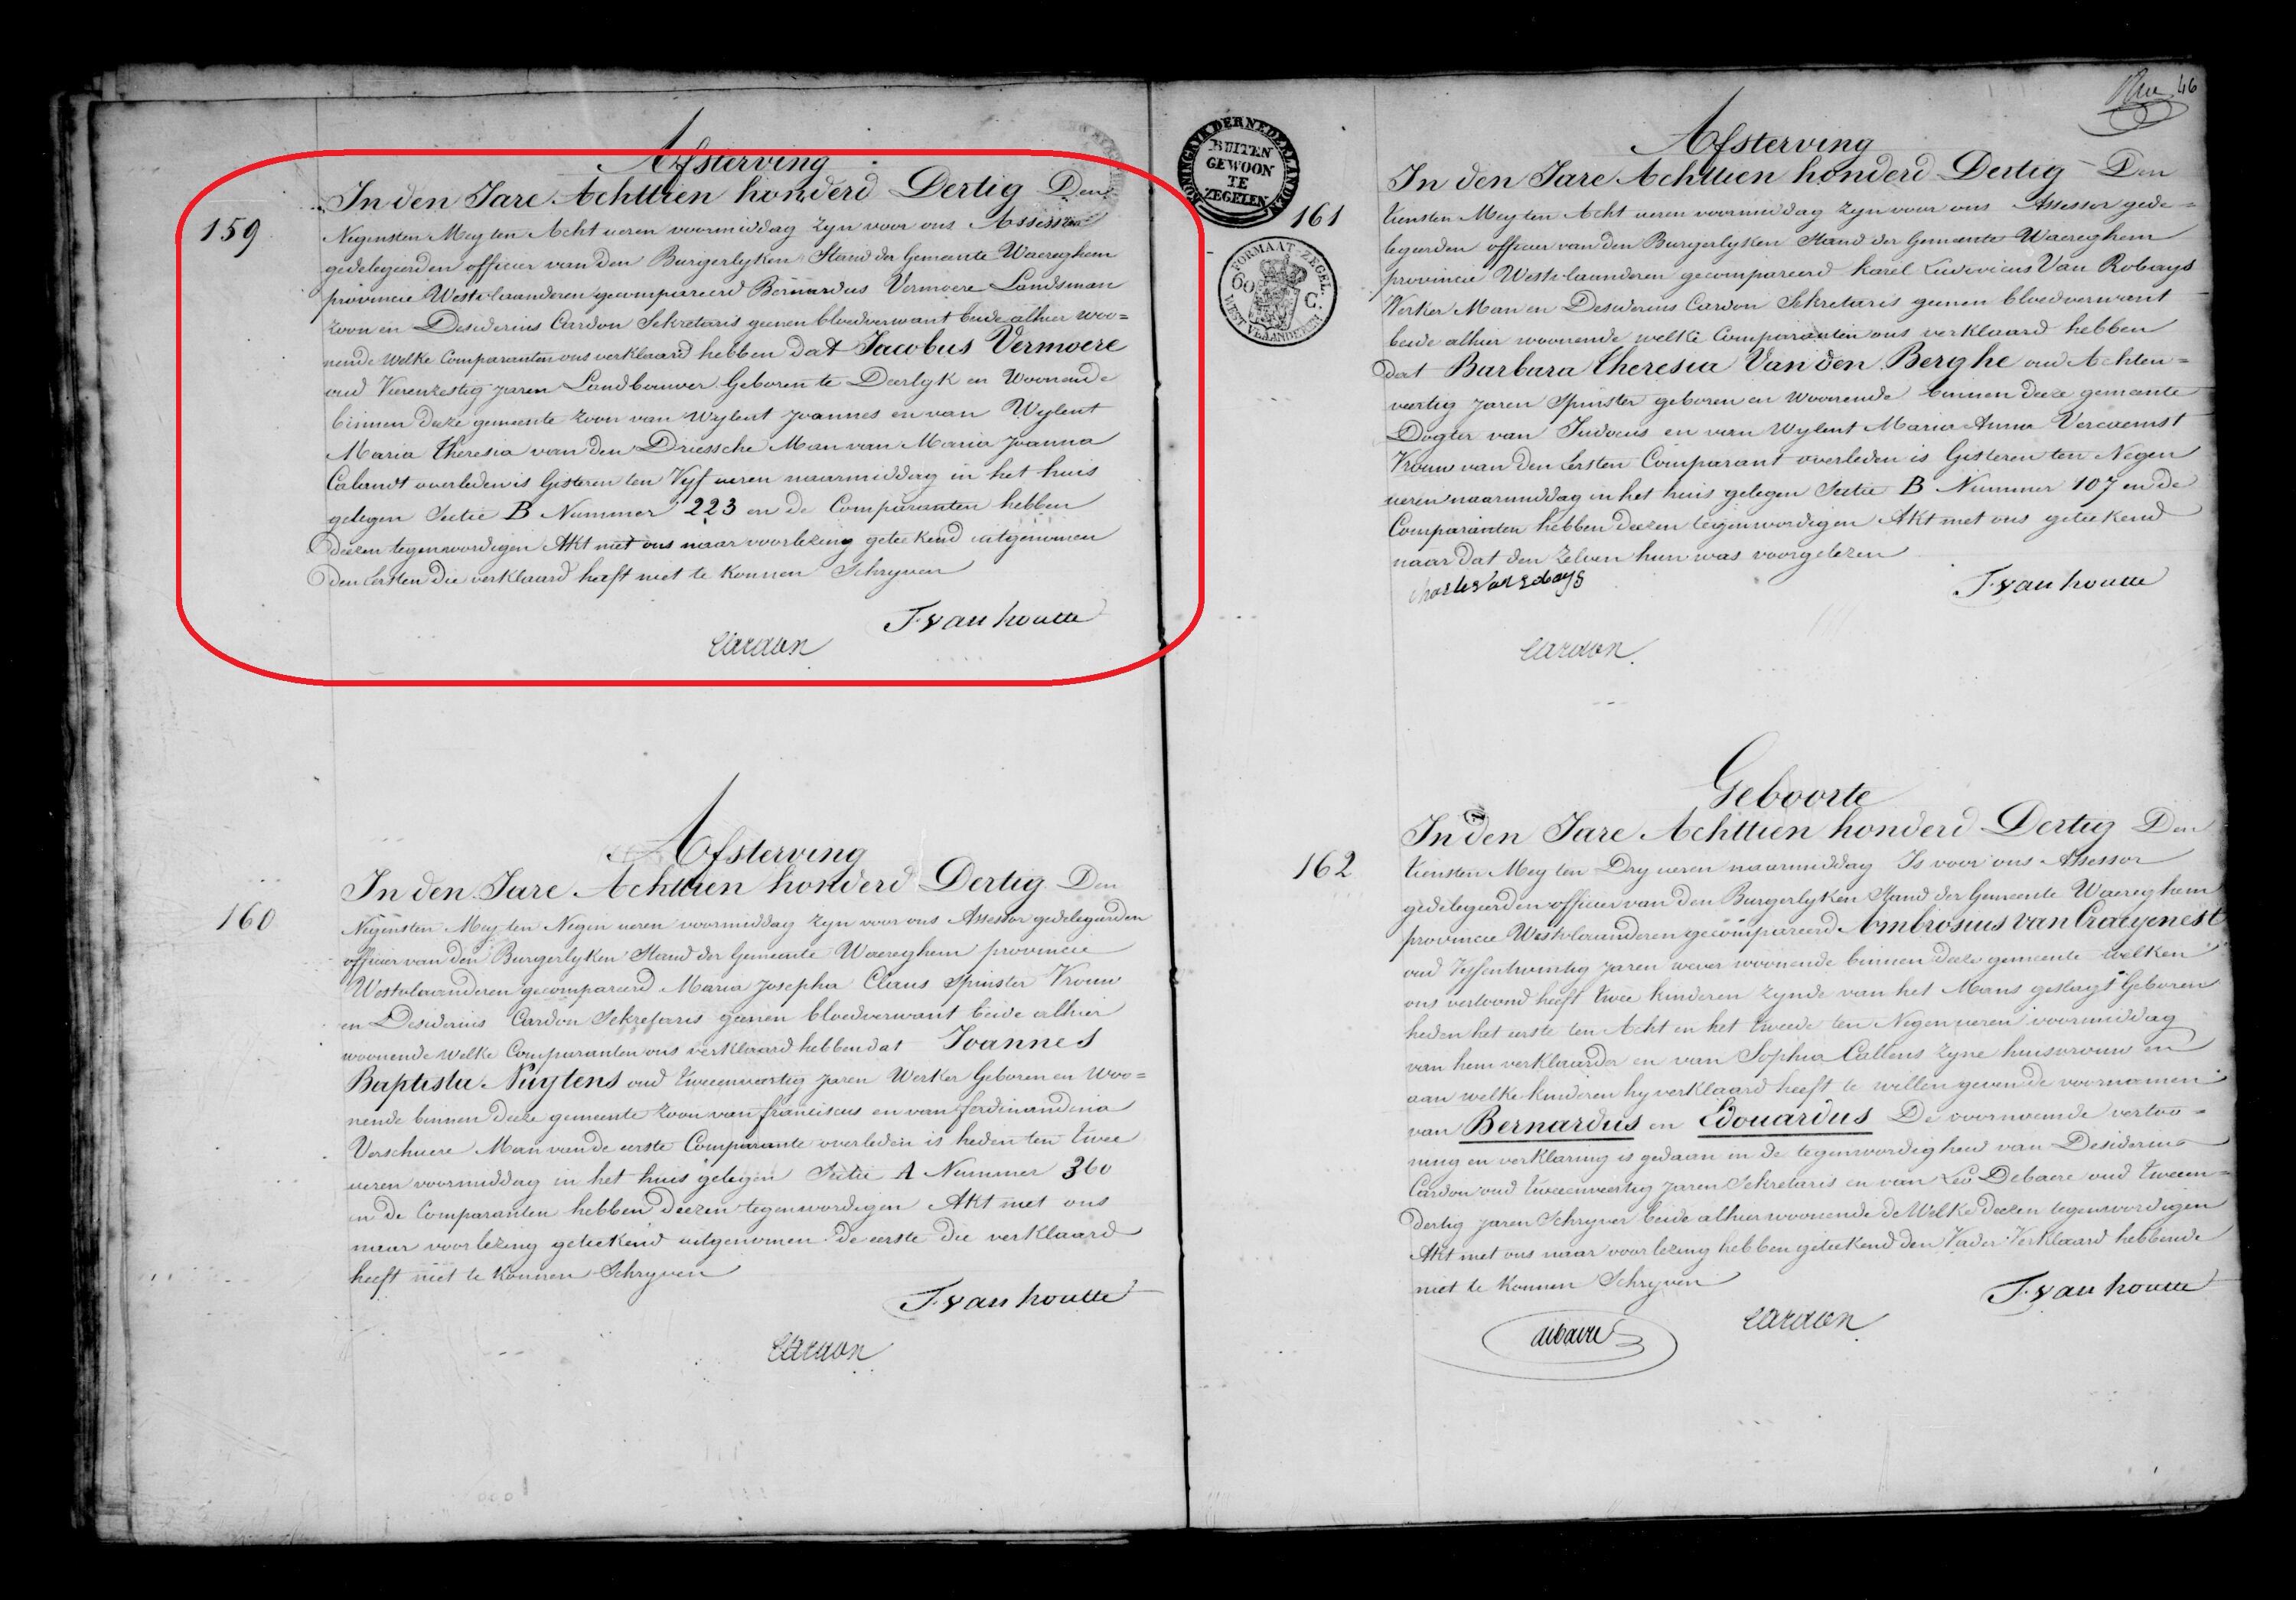 46
Afsterving
159
In den Jare Achttien honderd Dertig Den
Negensten Mey ten Acht ueren voormiddag zyn voor ons Assessor
gedelegeerden officier van den Burgerlyken Stand der Gemeente Waereghem
provincie Westvlaanderen gecompareerd Bernardus Vermoere Landsman
zoon en Desiderius Cardon Sekretaris geenen bloedverwant beide alhier woo=
nende welke Comparanten ons verklaard hebben dat Jacobus Vermoere
oud Vierenzestig jaren Landbouwer Geboren te Deerlyk en Woonende
binnen deeze gemeente zoon van Wylent Joannes en van Wylent
Maria Theresia van den Driessche Man van Maria Joanna
Calandt overleden is Gisteren ten Vyf ueren naarmiddag in het huis
gelegen Sectie B Nummer 223 en de Comparanten hebben
deezen tegenwoordigen Akt met ons naar voorlezing geteekend uitgenomen
den Eersten die verklaard heeft niet te konnen Schryven
J. van houtte
Cardon
Afsterving
160
In den Jare Achttien honderd Dertig Den
Negensten Mey ten Negen ueren voormiddag zyn voor ons Assessor gedelegeerden
officier van den Burgerlyken Stand der Gemeente Waereghem provincie
Westvlaanderen gecompareerd Maria Josepha Claus Spinster Vrouw
en Desiderius Cardon Sekretaris geenen bloedverwant beide alhier
woonende welke Comparanten ons verklaard hebben dat Joannes
Baptista Nuytens oud tweenveertig jaren Werker Geboren en Woo=
nende binnen deeze gemeente zoon van franciscus en van ferdinandina
Verschuere Man van de eerste Comparante overleden is heden ten twee
ueren voormiddag in het huis gelegen Sectie A Nummer 360
en de Comparanten hebben deezen tegenwoordigen Akt met ons
naar voorlezing geteekend uitgenomen de eerste die verklaard
heeft niet te konnen Schryven
J. van houtte
Cardon
KONINGRYK DER NEDERLANDEN
BUITEN
GEWOON
TE
ZEGELEN
FORMAAT-ZEGEL.
60 C.
WEST VLAANDEREN
Afsterving
161
In den Jare Achttien honderd Dertig Den
tiensten Mey ten Acht ueren voormiddag zyn voor ons Assessor gede=
legeerden officier van den Burgerlyken Stand der Gemeente Waereghem
provincie Westvlaanderen gecompareerd Karel Ludovicus Van Robays
Werker Man en Desiderius Cardon Sekretaris geenen bloedverwant
beide alhier woonende welke Comparanten ons verklaard hebben
dat Barbara Theresia Van den Berghe oud Achten=
veertig jaren Spinster geboren en woonende binnen deeze gemeente
Dogter van Judocus en van Wylent Maria Anna Vercaemst
Vrouw van den Eersten Comparant overleden is Gisteren ten Negen
ueren naarmiddag in het huis gelegen Sectie B Nummer 107 en de
Comparanten hebben deezen tegenwoordigen Akt met ons geteekend
naar dat den zelven hun was voorgelezen
J. van houtte
Cardon
Geboorte
162
In den Jare Achttien honderd Dertig Den
tiensten Mey ten Dry ueren naarmiddag Is voor ons Assessor
gedelegeerden officier van den Burgerlyken Stand der Gemeente Waereghem
provincie Westvlaanderen gecompareerd Ambrosius van Craeynest
oud Vyfentwintig jaren wever woonende binnen deeze gemeente welken
ons vertoond heeft twee kinderen zynde van het Mans geslagt Geboren
heden het eerste ten Acht en het tweede ten Negen ueren voormiddag
van hem verklaarder en van Sophia Callens zyne huisvrouw en
aan welke kinderen hy verklaard heeft te willen geven de voornamen
van Bernardus en Edouardus De voornoemde vertoo=
ning en verklaring is gedaan in de tegenwoordigheid van Desiderius
Cardon oud tweenveertig jaren Sekretaris en van Leo Debaere oud tweeen=
dertig jaren Schryver beide alhier woonende de Welke deezen tegenwoordigen
Akt met ons naar voorlezing hebben geteekend den Vader Verklaard hebbende
niet te konnen Schryven
J. van houtte
Cardon
debaere